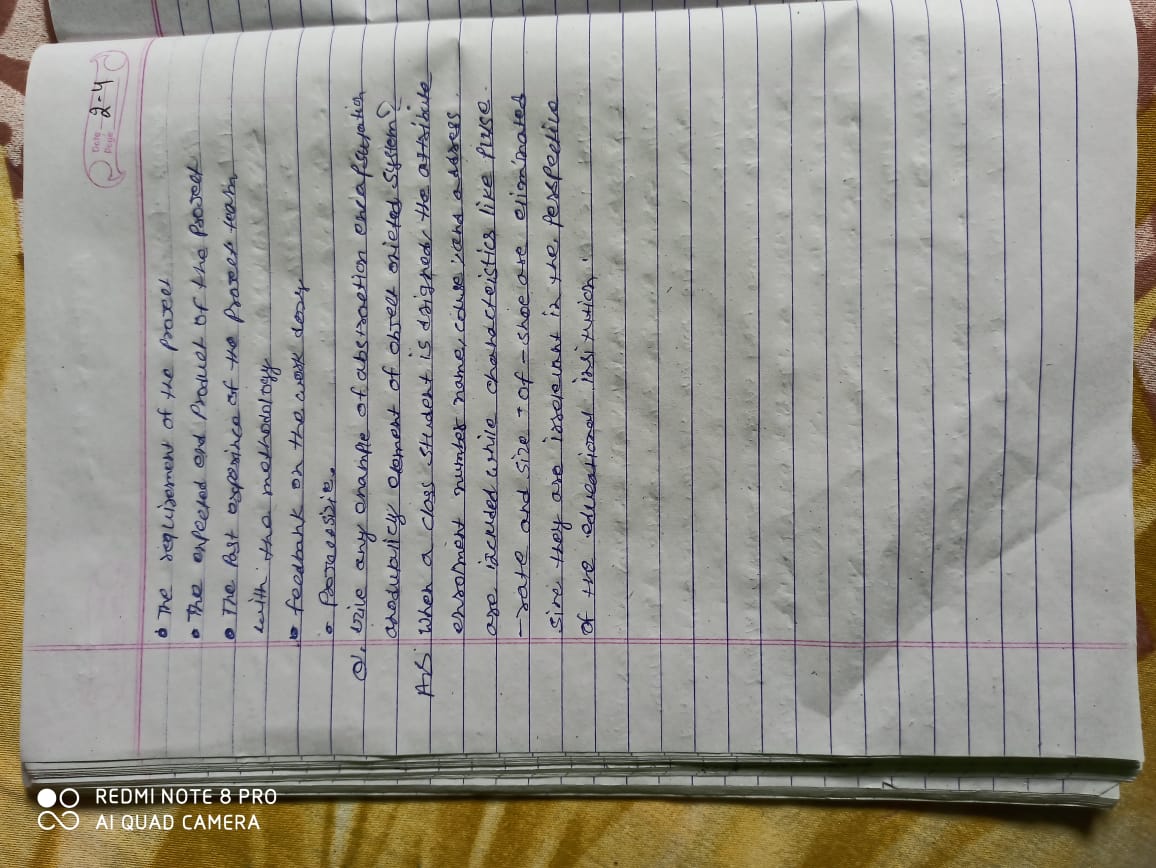 Date
Page 2-4
• The requirement of the Project
• The expected end Product of the Project
• The Past experince of the Project team
with the methodology
• feedbank on the work dony
• Processizie.
Q. Wile any examfle of abstraction encapsulation
and element of object orieted System?
AS When a class student is dsigned, the attribute
enrolment number name, couse, and address
are included while characteistics like Pluse
-rate and size - of - shoe are eliminated
sine they are irrelevant in the Perspective
of the educational insitution.
REDMI NOTE 8 PRO
AI QUAD CAMERA